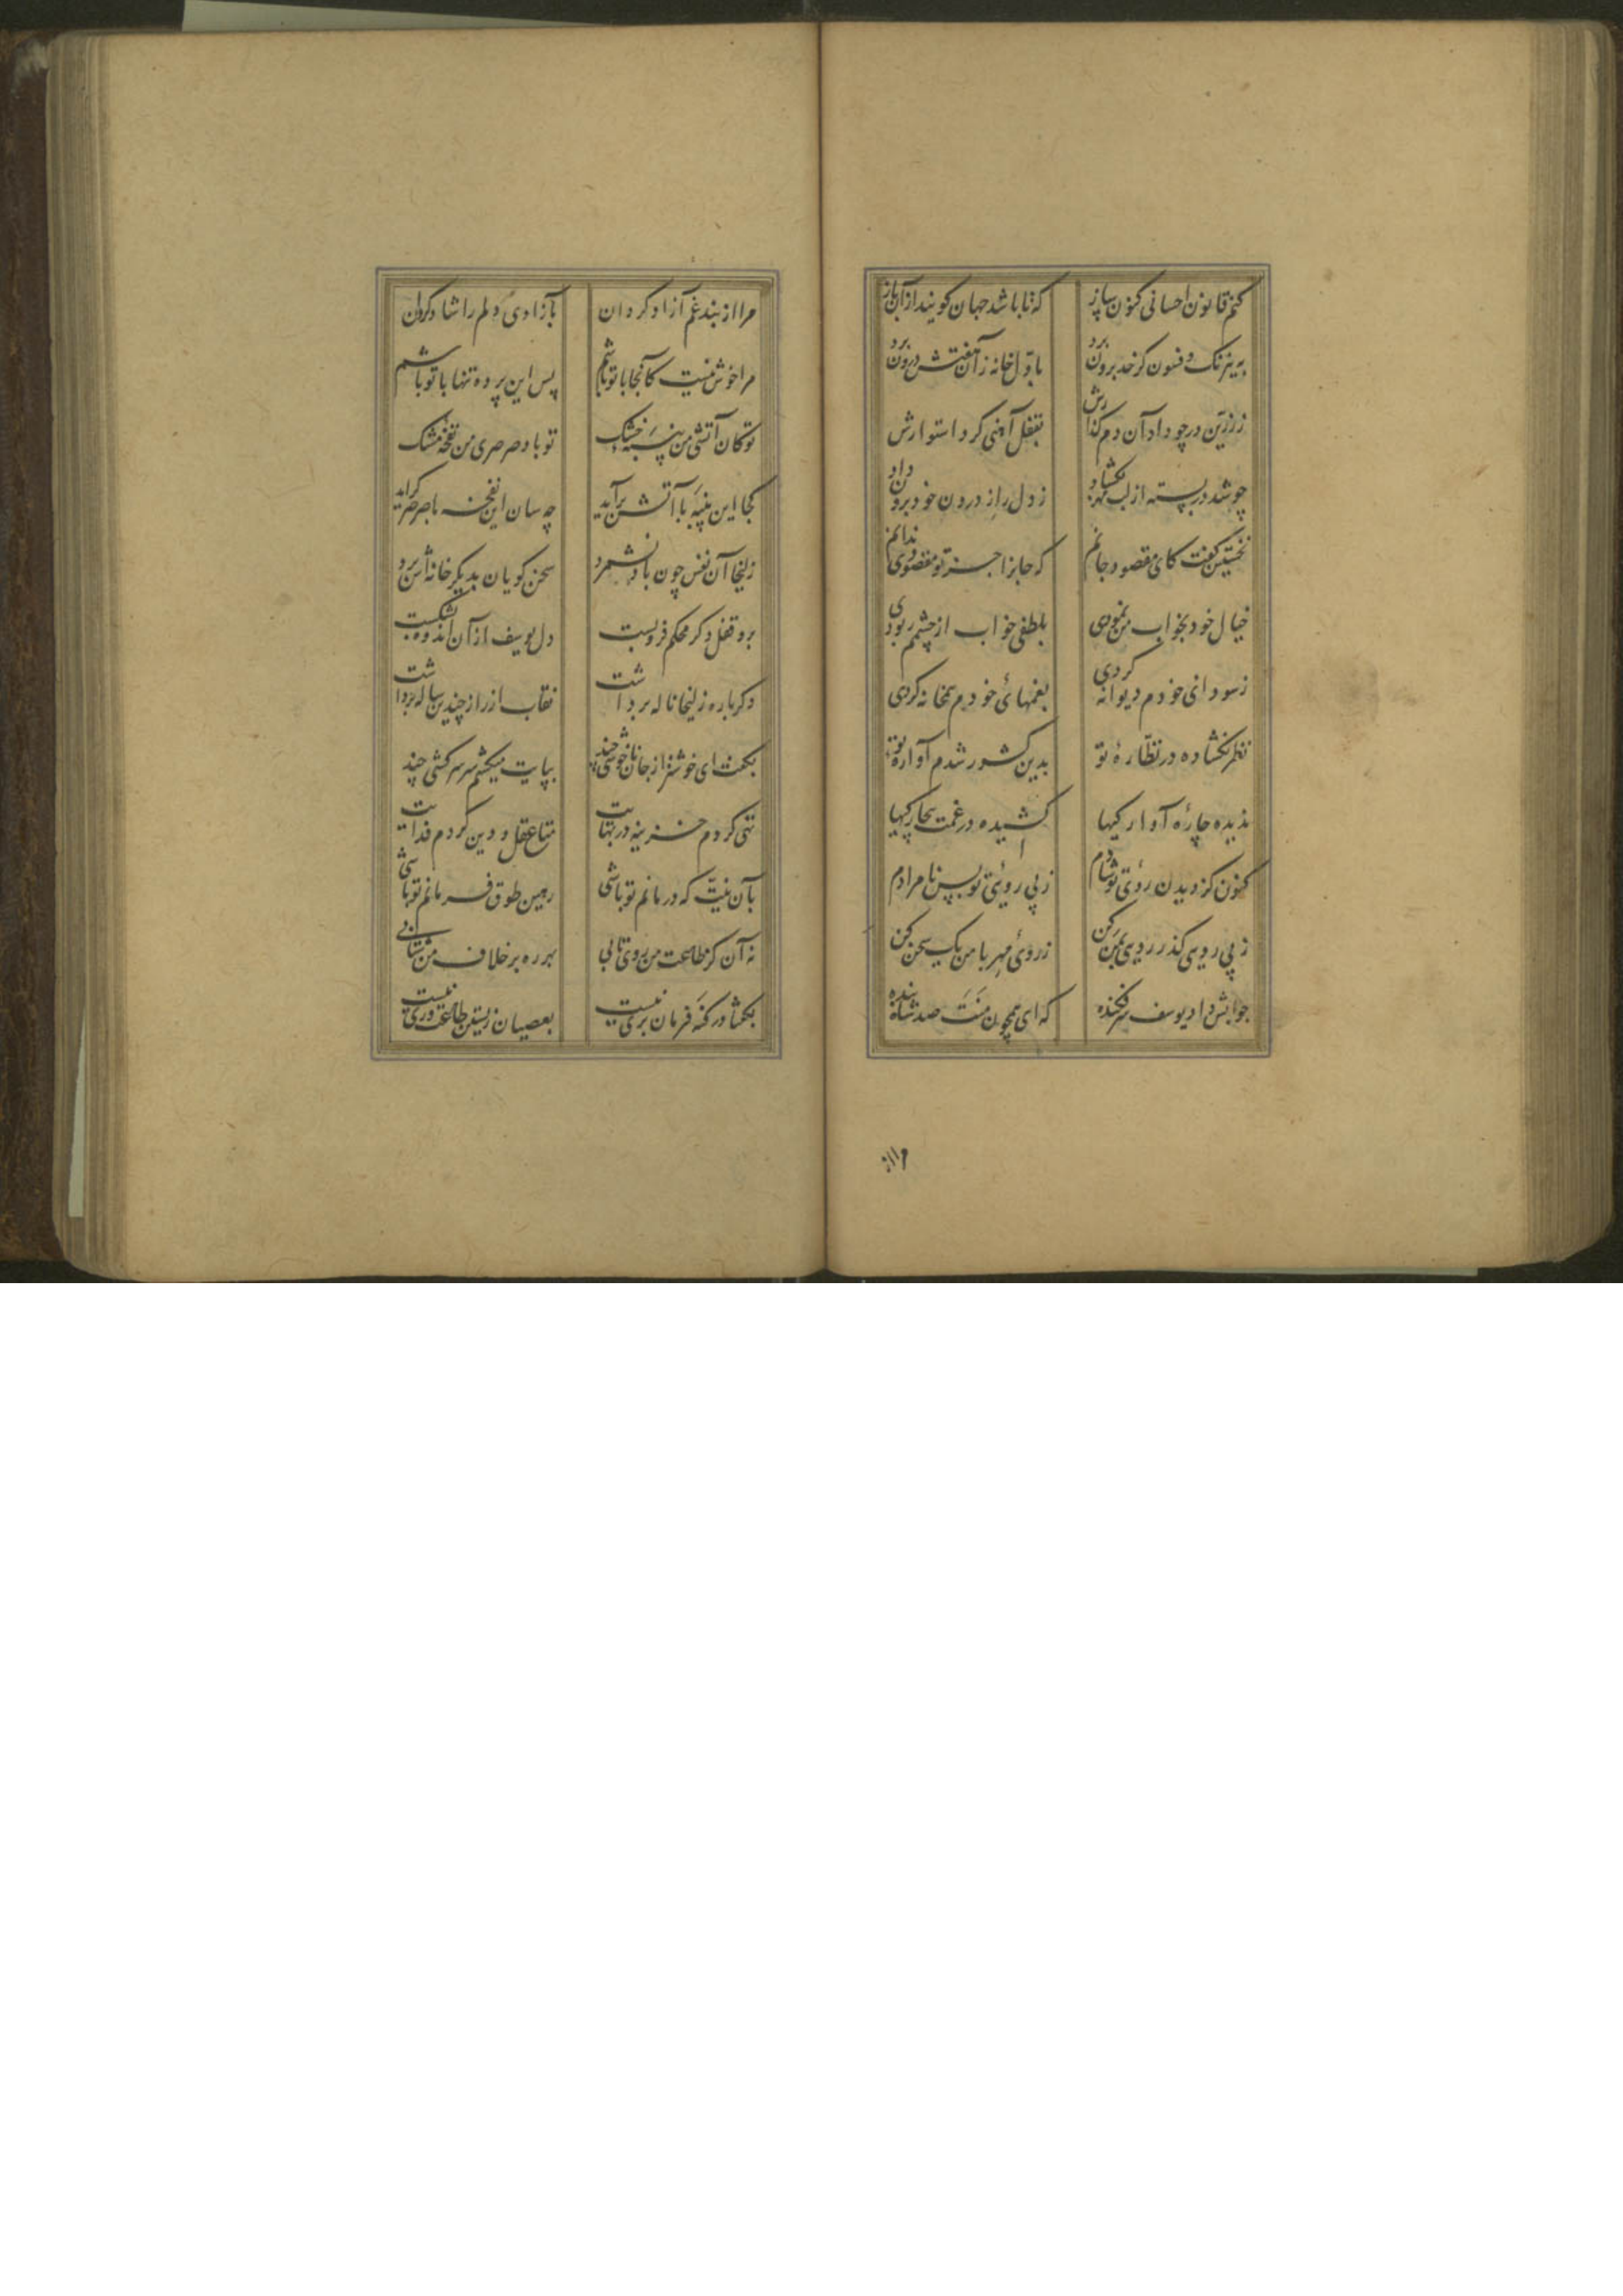 کنم قانون احسانی کنون ساز که تا باشد جهان کویند ازان باز
به نیرنک و فسون کز خد برون برد باول خانه زان هفتش درون برد
ز زرین در چو داد آن دم کذارش بقفل آهنی کرد استوارش
چو شد در بسته از لب مهر بکشاد ز دل راز درون خود برون داد
نخستین کفت کای مقصود جانم که جانرا جز تو مقصودی ندانم
خیال خود بخواب من نمودی بلطفی خواب از چشمم ربودی
ز سودائی خودم دیوانه کردی بغمهائ خودم همخانه کردی
نظر نکشاده در نظّارهٔ تو بدین کشور شدم آوارهٔ تو
ندیده چارهٔ آوارکیها کشیده در غمت بیچارکیها
کنون کز دیدن روئی تو شادم ز بی روئی تو بس نامرادم
ز بی رویی کذر رویی بمن کن ز روئ مهر با من یک سخن کن
جوابش داد یوسف سرفکنده که ای همچون منت صد شاه بنده
۱۱۹
مرا از بند غم آزاد کردان بآزادی دلم را شاد کردان
مرا خوش نیست کانجا با تو باشم پس این پرده تنها با تو باشم
تو کان آتشی من پنبهٔ خشک تو باد صرصری من نفحهٔ مشک
کجا این پنبه با آتش برآید چه سان این نفحه با صرصر کراید
زلیخا آن نفس چون باد نشمرد سخن کویان بدیکر خانه‌اش برد
برو قفل دکر محکم فرو بست دل یوسف از آن اندوه بشکست
دکرباره زلیخا ناله برداشت نقاب از راز چندین ساله برداشت
بکفت ای خوشتر از جان ناخوشی چند بپایت میکشم سر سرکشی چند
تهی کردم خزینه در بهایت متاع عقل و دین کردم فدایت
بآن نیّت که درمانم تو باشی رهین طوق فرمانم تو باشی
نه آن کز طاعت من روی تابی بهر ره بر خلاف من شتابی
بکفتا در کنه فرمان بری نیست بعصیان زیستن طاعت وری نیست